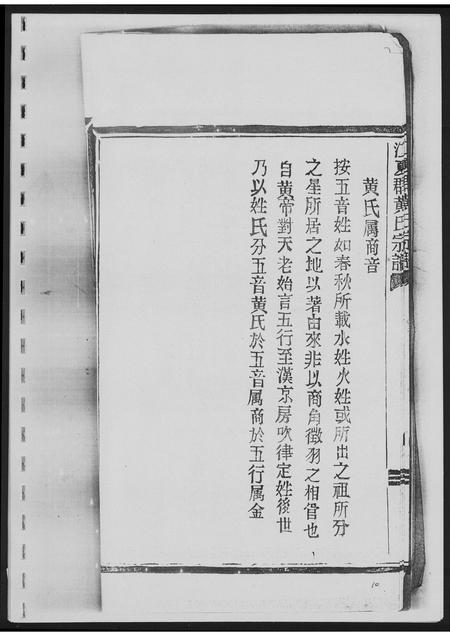 江夏郡黄氏宗譜
黄氏属商音
按五音姓如春秋所載水姓火姓或所出之祖所分
之星所居之地以著由來非以商角徵羽之相管也
自黄帝對天老始言五行至漢京房吹律定姓後世
乃以姓氏分五音黄氏於五音属商於五行属金
10